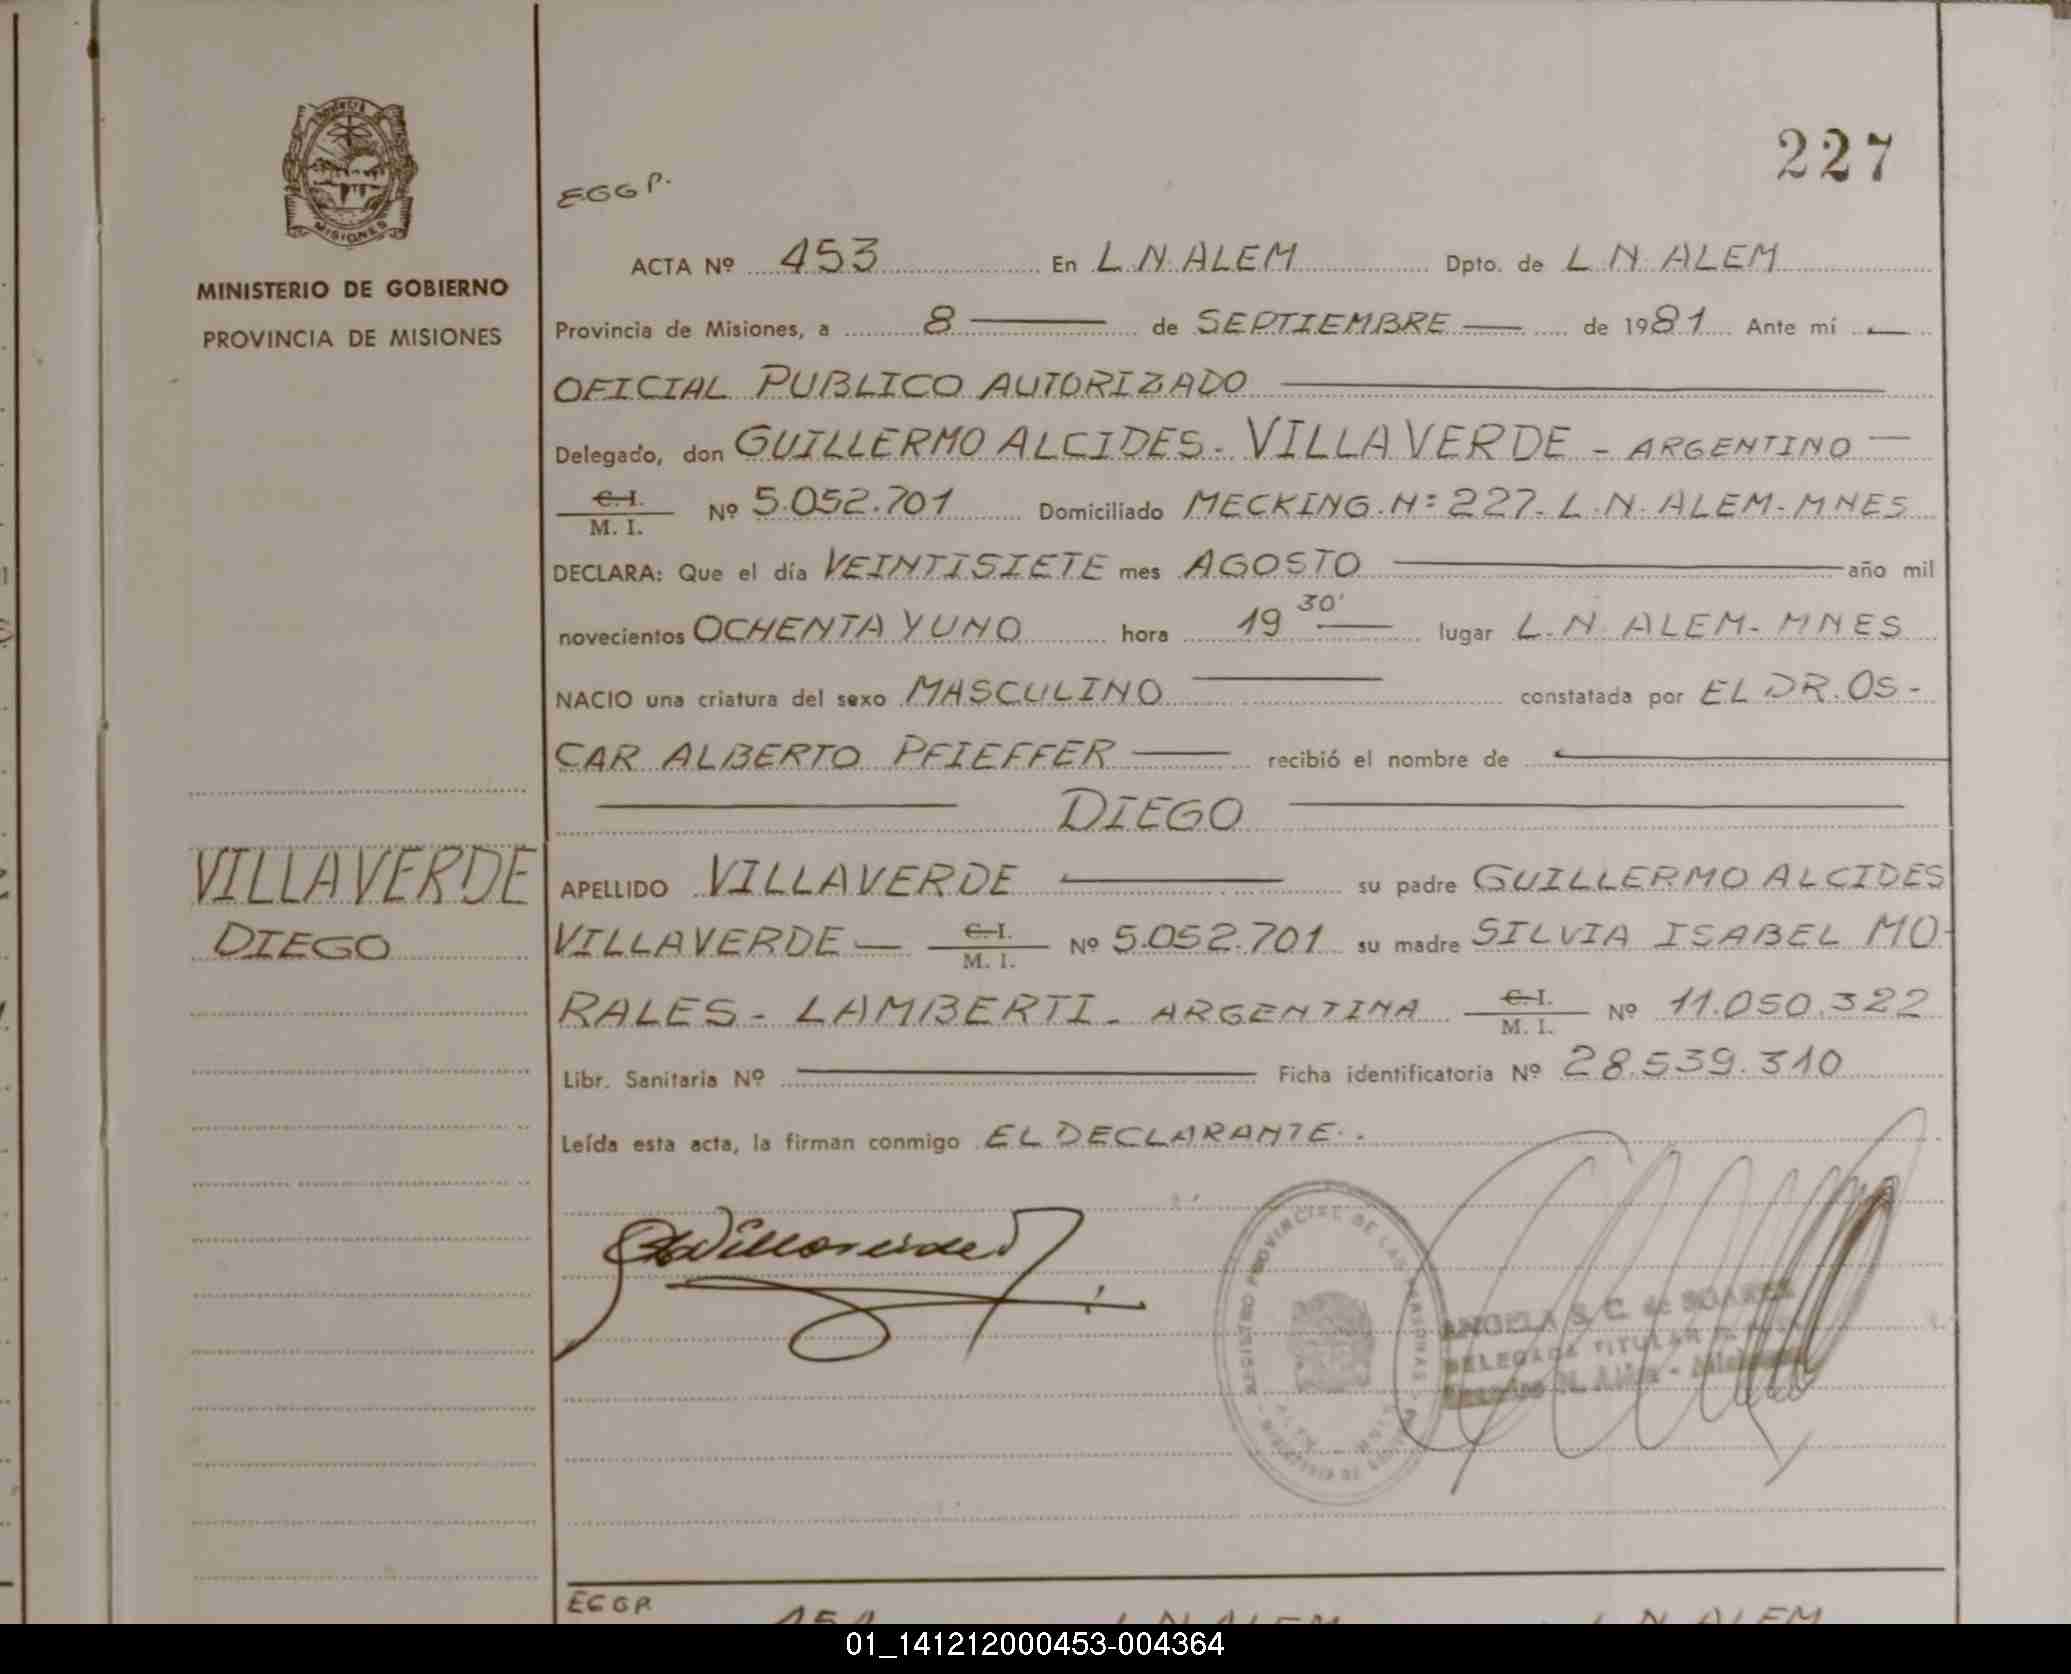 227
MISIONES
MINISTERIO DE GOBIERNO
PROVINCIA DE MISIONES
EGGP.
ACTA Nº 453 En L.N. ALEM Dpto. de L N ALEM
Provincia de Misiones, a 8 de SEPTIEMBRE de 1981 Ante mí
OFICIAL PUBLICO AUTORIZADO
Delegado, don GUILLERMO ALCIDES. VILLAVERDE - ARGENTINO
C. I.
M. I. Nº 5.052.701 Domiciliado MECKING. Nº 227. L.N. ALEM-MNES
DECLARA: Que el día VEINTISIETE mes AGOSTO año mil
novecientos OCHENTA Y UNO hora 19 30' lugar L.N ALEM-MNES
NACIO una criatura del sexo MASCULINO constatada por EL DR. OS-
CAR ALBERTO PFIEFFER recibió el nombre de
DIEGO
VILLAVERDE
DIEGO
APELLIDO VILLAVERDE su padre GUILLERMO ALCIDES
VILLAVERDE C. I.
M. I. Nº 5.052.701 su madre SILVIA ISABEL MO-
RALES - LAMBERTI - ARGENTINA C. I.
M. I. Nº 11.050.322
Libr. Sanitaria Nº Ficha identificatoria Nº 28.539.310
Leída esta acta, la firman conmigo EL DECLARANTE.
REGISTRO PROVINCIAL DE LAS PERSONAS
ANGELA S. C. de SOAREZ
DELEGADA TITULAR
EGGP
454 L N ALEM L N ALEM
01_141212000453-004364